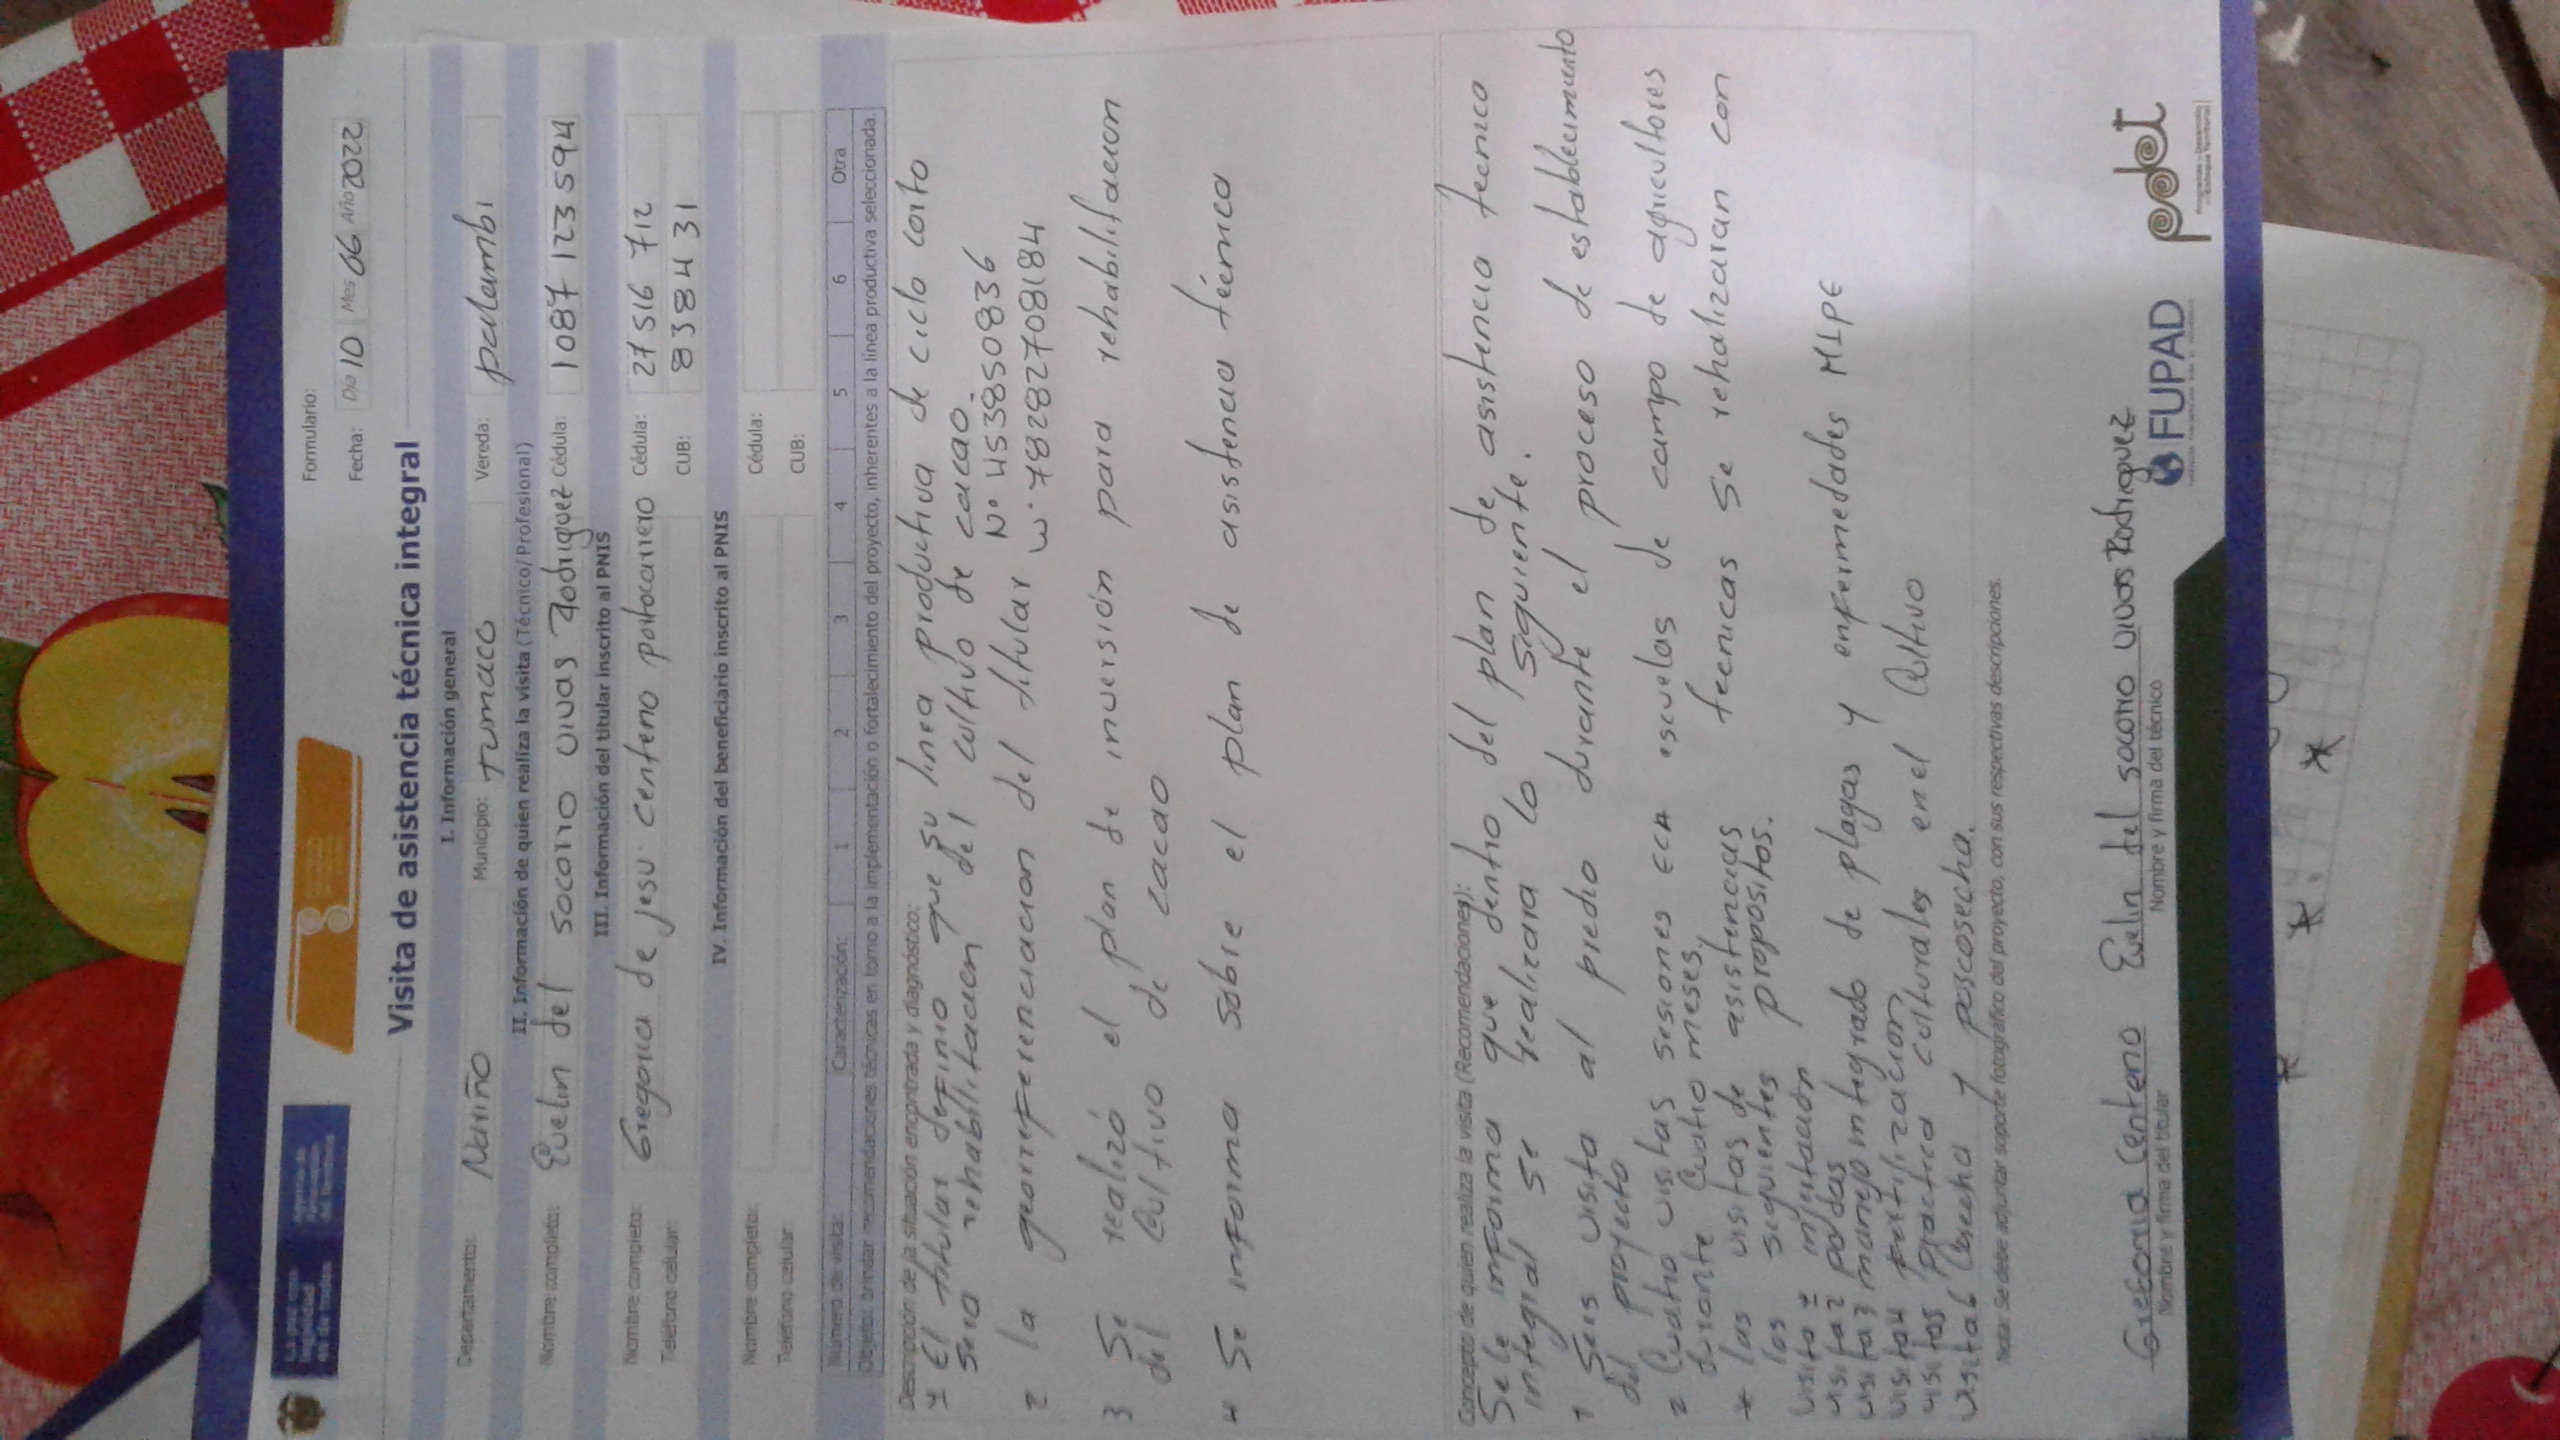 Formulario:
Fecha: Día 10 Mes 06 Año 2022
Visita de asistencia técnica integral
I. Información general
Departamento: Nariño Municipio: Tumaco Vereda: palambi
II. Información de quien realiza la visita (Técnico/ Profesional)
Nombre completo: Evelin del socorro vivas Rodriguez Cédula: 1087 123 594
III. Información del titular inscrito al PNIS
Nombre completo: Gregoria de jesu centeno portocarrero Cédula: 27 516 712
Teléfono celular: CUB: 8384 31
IV. Información del beneficiario inscrito al PNIS
Nombre completo: Cédula:
Teléfono celular: CUB:
Número de visita: Caracterización: 1 2 3 4 5 6 Otra
Objeto: brindar recomendaciones técnicas en torno a la implementación o fortalecimiento del proyecto, inherentes a la línea productiva seleccionada.
Descripción de la situación encontrada y diagnóstico:
1 El titular definio que su linea productiva de ciclo corto
sera rehabilitacion del cultivo de cacao.
N° 453850836
2 la georreferenciacion del titular w. 78282708184
3 Se realizó el plan de inversión para rehabilitacion
del Cultivo de cacao
4 Se informa sobre el plan de asistencia técnica
Concepto de quien realiza la visita (Recomendaciones):
Se le informa que dentro del plan de asistencia tecnico
integral se realizara lo siguiente.
1 Seis visita al predio durante el proceso de establecimiento
del proyecto
2 Cuatro visitas sesiones ECA escuelas de campo de agricultores
durante Cuatro meses,
* las visitas de asistencias tecnicas se rehalizaran con
los siguientes propositos.
visita 1
visita 2 podas
visita 3 manejo integrado de plagas y enfermedades MIPE
visita 4 fertilización
visitas practica culturales en el Cultivo
visita 6 Cosecha y poscosecha.
Nota: Se debe adjuntar soporte fotográfico del proyecto, con sus respectivas descripciones.
Gregoria Centeno Evelin del socorro vivas Rodriguez
Nombre y firma del titular Nombre y firma del técnico
FUPAD
pdet